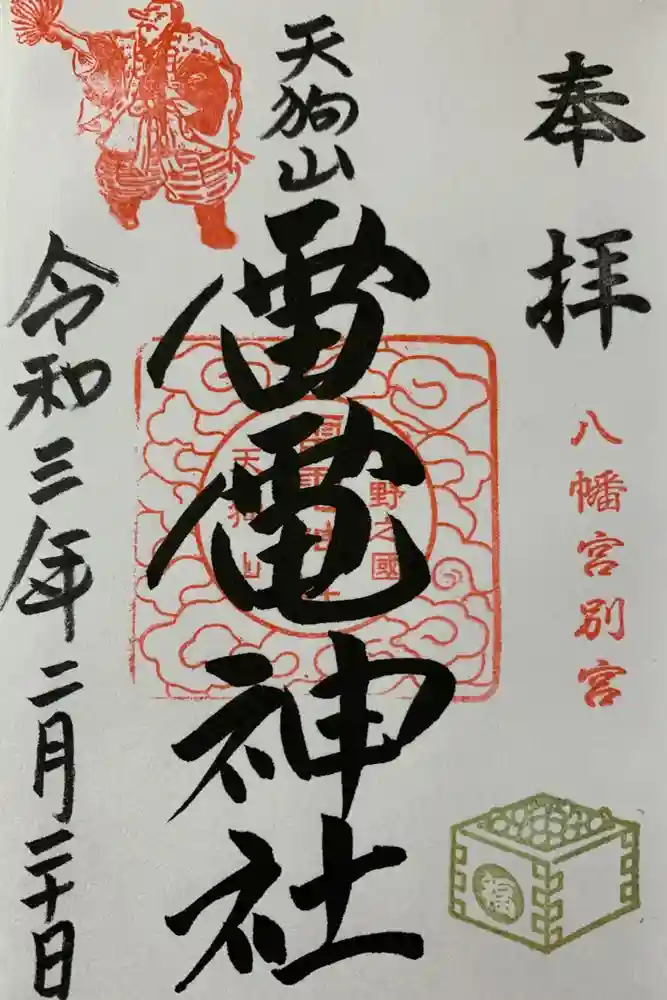 奉拝
八幡宮別宮
福
天狗山
雷電神社
野之國
天狗山
令和三年二月二十日